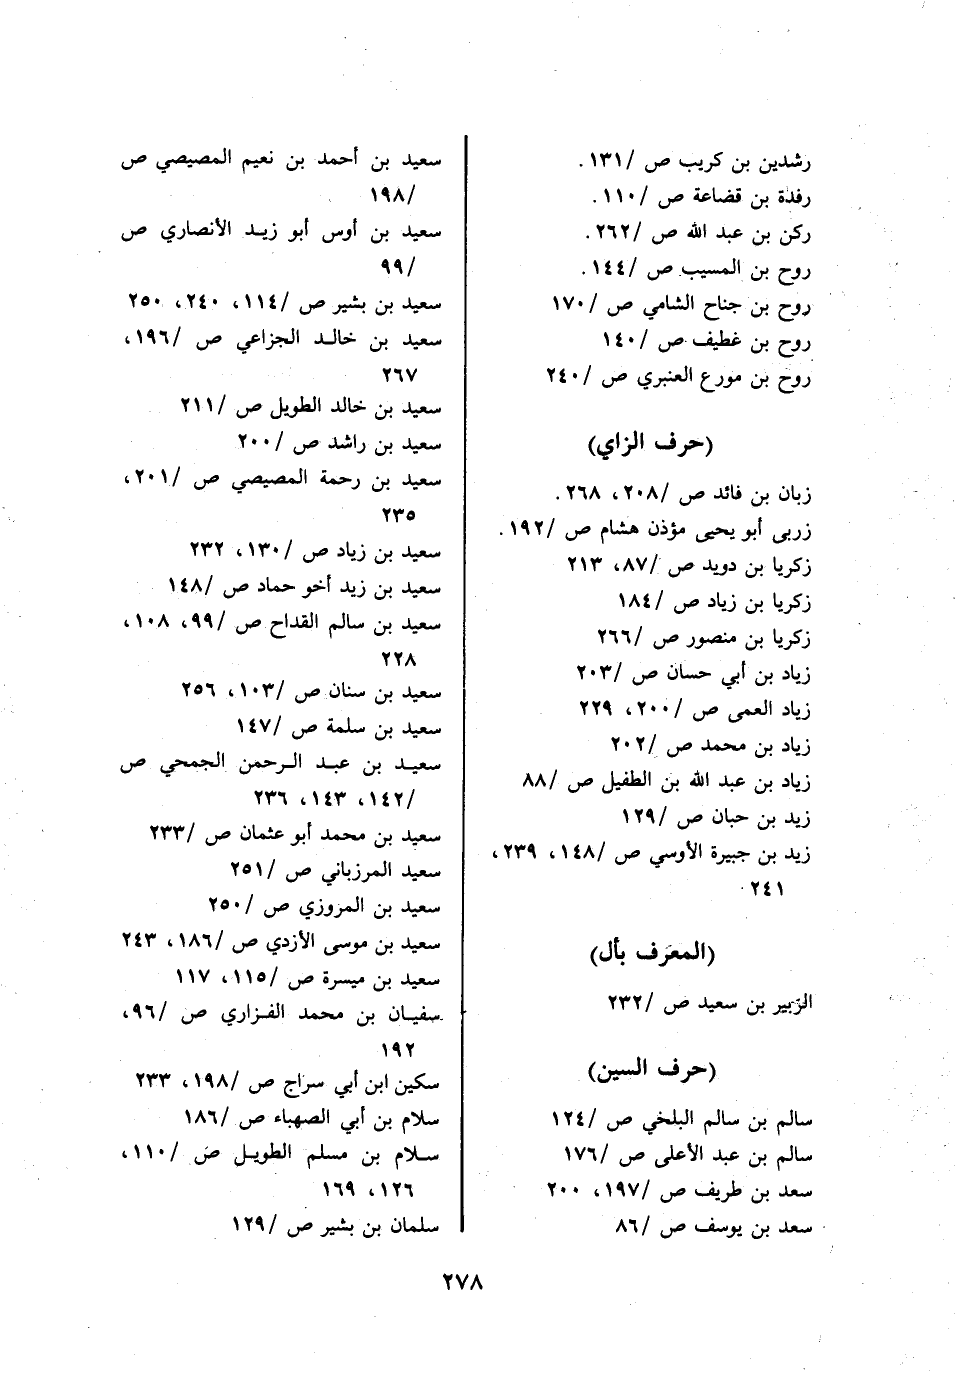 رشدين بن كريب ص /١٣١.
رفدة بن قضاعة ص /١١٠.
ركن بن عبد الله ص /٢٦٢.
روح بن المسيب ص /١٤٤.
روح بن جناح الشامي ص /١٧٠
روح بن غطيف ص /١٤٠
روح بن مورع العنبري ص /٢٤٠
(حرف الزاي)
زبان بن فائد ص /٢٠٨، ٢٦٨.
زربى أبو يحيى مؤذن هشام ص /١٩٢.
زكريا بن دويد ص /٨٧، ٢١٣
زكريا بن زياد ص /١٨٤
زكريا بن منصور ص /٢٦٦
زياد بن أبي حسان ص /٢٠٣
زياد العمى ص /٢٠٠، ٢٢٩
زياد بن محمد ص /٢٠٢
زياد بن عبد الله بن الطفيل ص /٨٨
زيد بن حبان ص /١٢٩
زيد بن جبيرة الأوسي ص /١٤٨، ٢٣٩،
٢٤١
(المعرف بأل)
الزبير بن سعيد ص /٢٣٢
(حرف السين)
سالم بن سالم البلخي ص /١٢٤
سالم بن عبد الأعلى ص /١٧٦
سعد بن طريف ص /١٩٧، ٢٠٠
سعد بن يوسف ص /٨٦
سعيد بن أحمد بن نعيم المصيصي ص
/١٩٨
سعيد بن أوس أبو زيد الأنصاري ص
/٩٩
سعيد بن بشير ص /١١٤، ٢٤٠، ٢٥٠
سعيد بن خالد الجزاعي ص /١٩٦،
٢٦٧
سعيد بن خالد الطويل ص /٢١١
سعيد بن راشد ص /٢٠٠
سعيد بن رحمة المصيصي ص /٢٠١،
٢٣٥
سعيد بن زياد ص /١٣٠، ٢٣٢
سعيد بن زيد أخو حماد ص /١٤٨
سعيد بن سالم القداح ص /٩٩، ١٠٨،
٢٢٨
سعيد بن سنان ص /١٠٣، ٢٥٦
سعيد بن سلمة ص /١٤٧
سعيد بن عبد الرحمن الجمحي ص
/١٤٢، ١٤٣، ٢٣٦
سعيد بن محمد أبو عثمان ص /٢٣٣
سعيد المرزباني ص /٢٥١
سعيد بن المروزي ص /٢٥٠
سعيد بن موسى الأزدي ص /١٨٦، ٢٤٣
سعيد بن ميسرة ص /١١٥، ١١٧
سفيان بن محمد الفزاري ص /٩٦،
١٩٢
سكين ابن أبي سراج ص /١٩٨، ٢٣٣
سلام بن أبي الصهباء ص /١٨٦
سلام بن مسلم الطويل ص /١١٠،
١٢٦، ١٦٩
سلمان بن بشير ص /١٢٩
٢٧٨